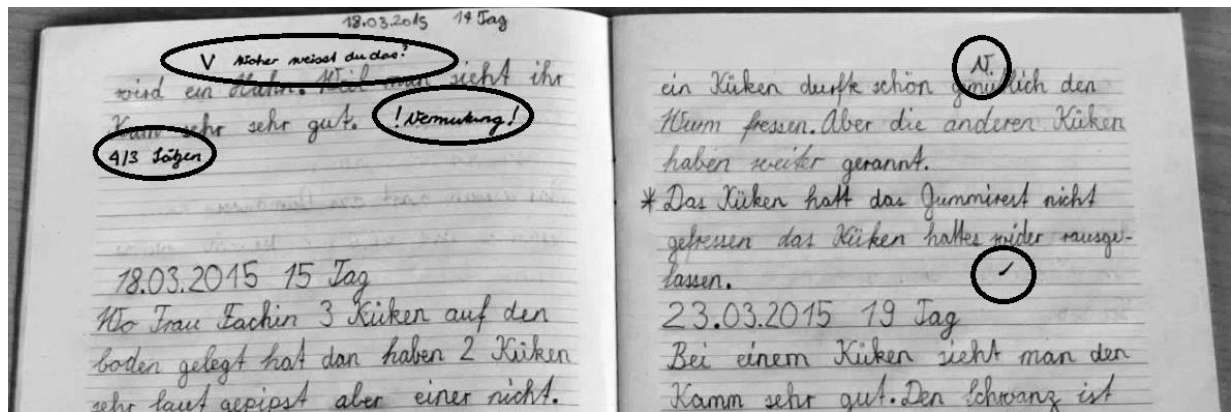 18.03.2015 14 Tag
V Woher weisst du das?
wird ein Hahn. Weil man sieht ihr
Kam sehr sehr gut. ! Vermutung !
4/3 Sätzen
18.03.2015 15 Tag
Wo Frau Fachin 3 Küken auf den
boden gelegt hat dan haben 2 Küken
sehr laut gepipst aber einer nicht.
N.
ein Küken durfte schön gmütlich den
Wurm fressen. Aber die anderen Küken
haben weiter gerannt.
* Das Küken hatt das Gummirest nicht
gefressen das Küken hattes wider rausge-
lassen. ✓
23.03.2015 19 Tag
Bei einem Küken sieht man den
Kamm sehr gut. Den Schwanz ist